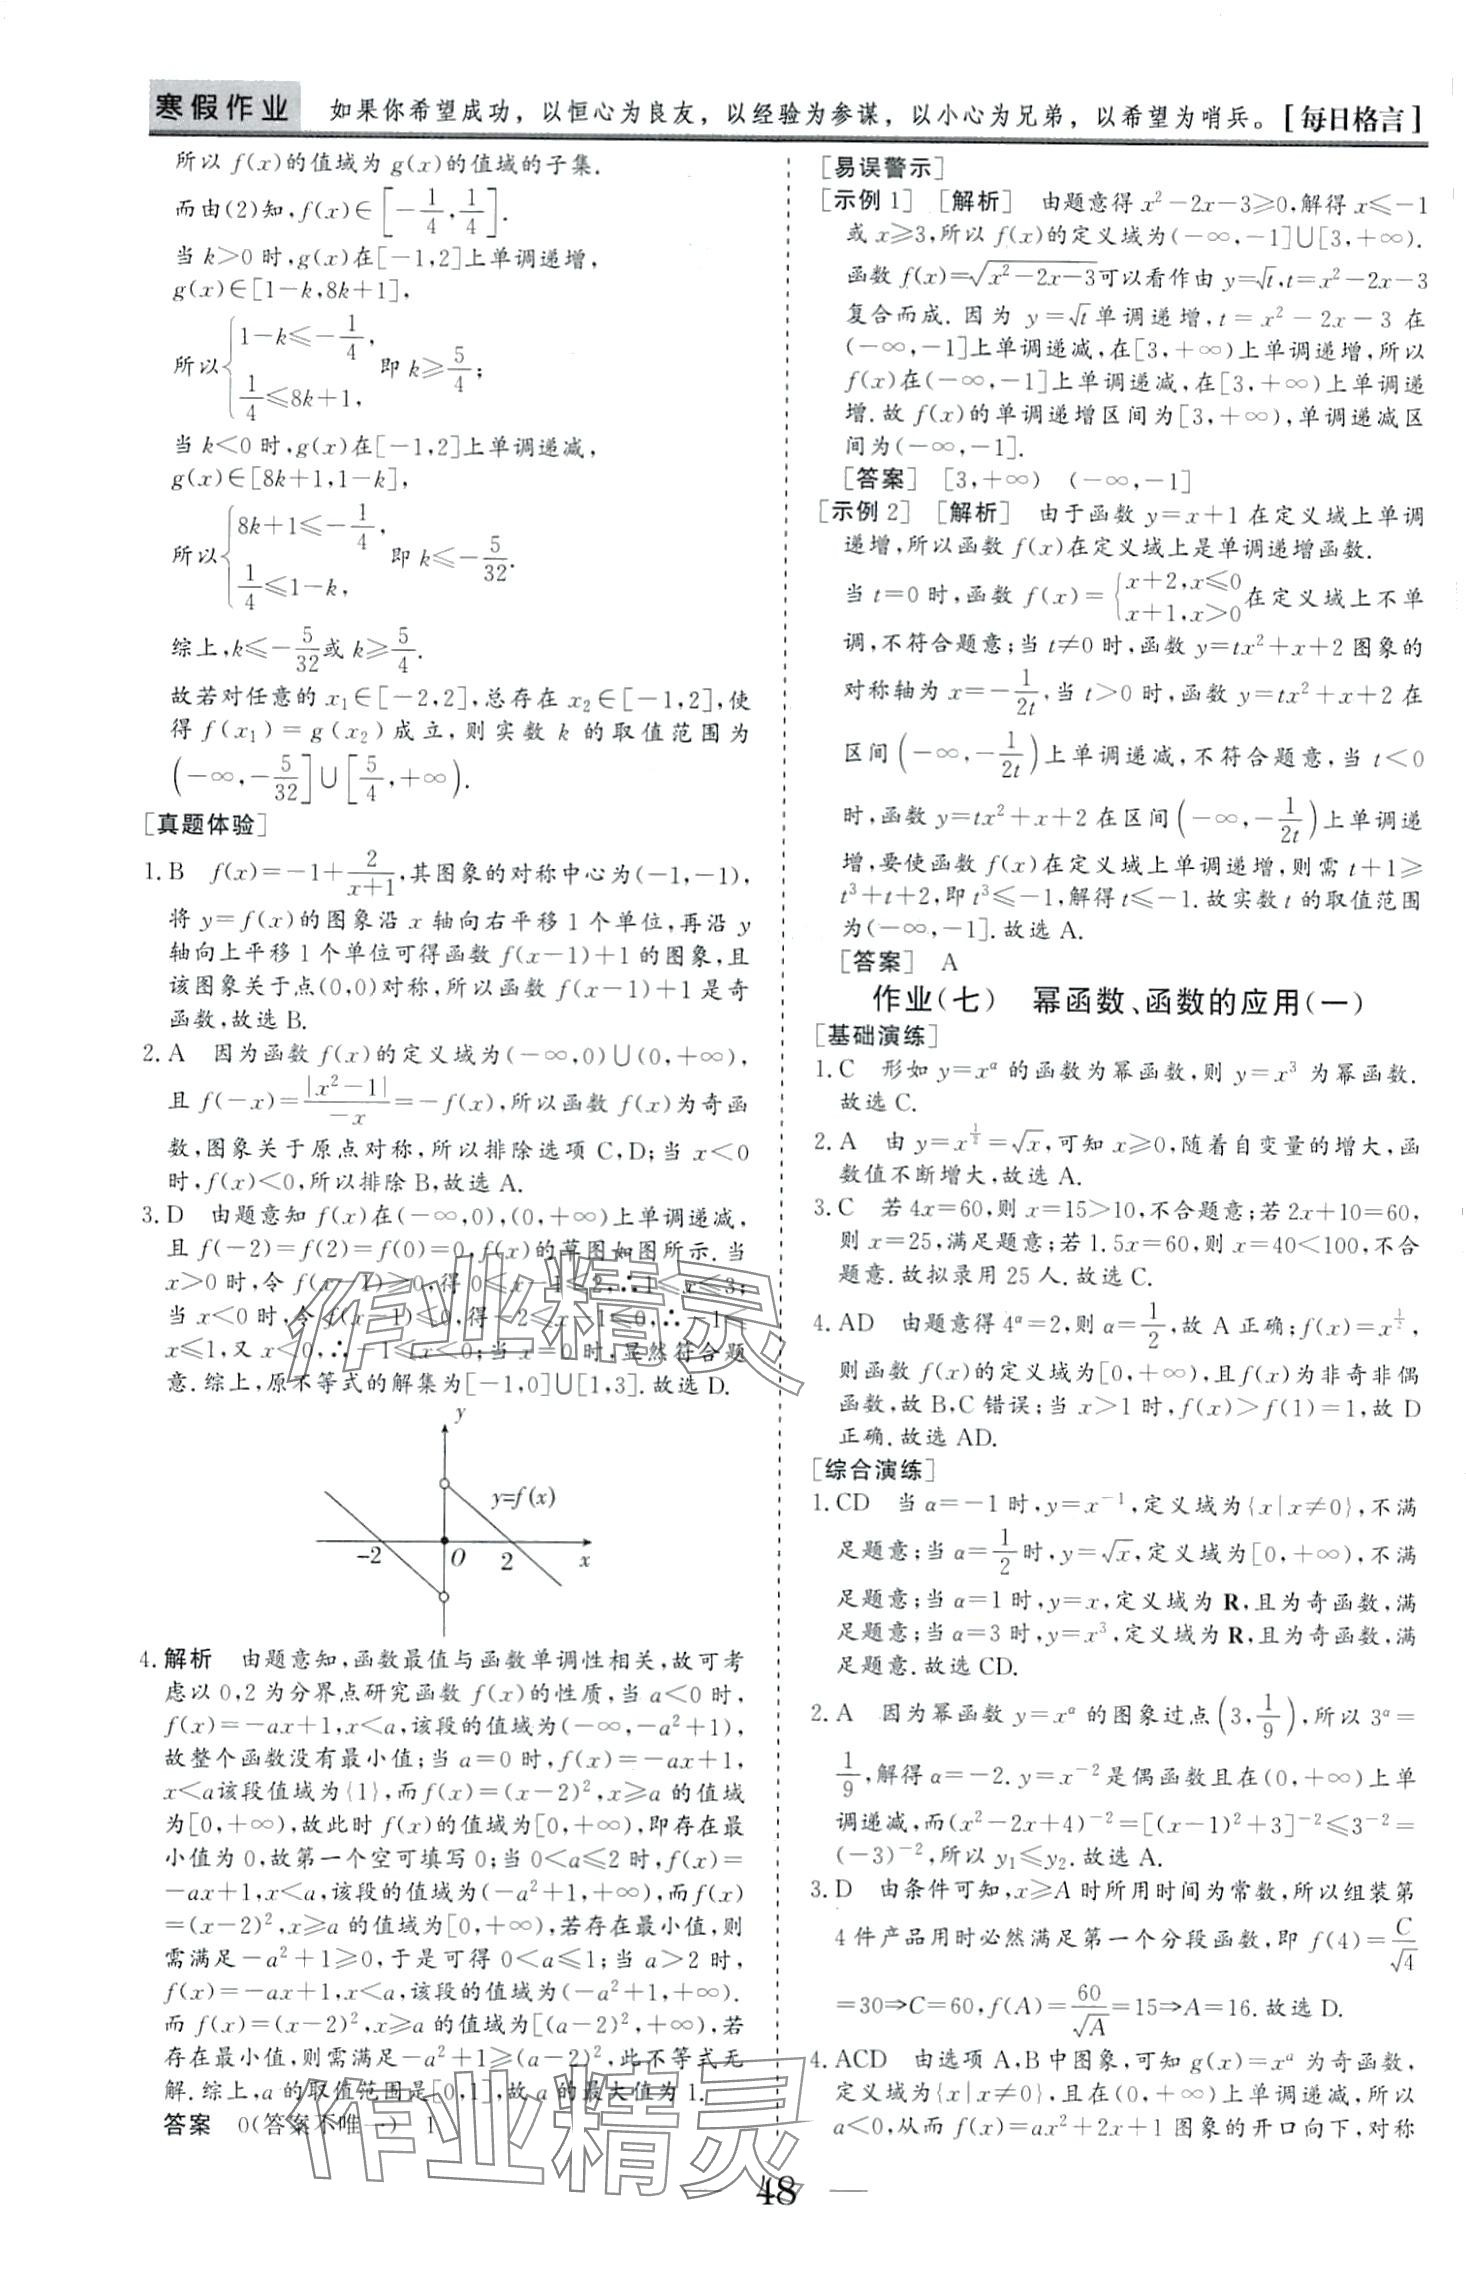 寒假作业 如果你希望成功，以恒心为良友，以经验为参谋，以小心为兄弟，以希望为哨兵。[每日格言]
所以 f(x)的值域为 g(x)的值域的子集.
而由(2)知,f(x)∈[-1/4,1/4].
当 k>0 时,g(x)在[-1,2]上单调递增,
g(x)∈[1-k,8k+1],
所以{1-k≤-1/4, 1/4≤8k+1, 即 k≥5/4;
当 k<0 时,g(x)在[-1,2]上单调递减,
g(x)∈[8k+1,1-k],
所以{8k+1≤-1/4, 1/4≤1-k, 即 k≤-5/32.
综上,k≤-5/32或 k≥5/4.
故若对任意的 x₁∈[-2,2],总存在 x₂∈[-1,2],使
得 f(x₁)=g(x₂)成立,则实数 k 的取值范围为
(-∞,-5/32]∪[5/4,+∞).
[真题体验]
1.B f(x)=-1+2/(x+1),其图象的对称中心为(-1,-1),
将 y=f(x)的图象沿 x 轴向右平移 1 个单位,再沿 y
轴向上平移 1 个单位可得函数 f(x-1)+1 的图象,且
该图象关于点(0,0)对称,所以函数 f(x-1)+1 是奇
函数,故选 B.
2.A 因为函数 f(x)的定义域为(-∞,0)∪(0,+∞),
且 f(-x)=|x²-1|/-x=-f(x),所以函数 f(x)为奇函
数,图象关于原点对称,所以排除选项 C,D;当 x<0
时,f(x)<0,所以排除 B,故选 A.
3.D 由题意知 f(x)在(-∞,0),(0,+∞)上单调递减,
且 f(-2)=f(2)=f(0)=0,f(x)的草图如图所示.当
x>0 时,令 f(x-1)≥0,得 0≤x-1≤2,∴1≤x≤3;
当 x<0 时,令 f(x-1)≤0,得-2≤x-1≤0,∴-1≤
x≤1,又 x<0,∴-1≤x<0;当 x=0 时,显然符合题
意.综上,原不等式的解集为[-1,0]∪[1,3].故选 D.
y
y=f(x)
-2 O 2 x
4.解析 由题意知,函数最值与函数单调性相关,故可考
虑以 0,2 为分界点研究函数 f(x)的性质,当 a<0 时,
f(x)=-ax+1,x<a,该段的值域为(-∞,-a²+1),
故整个函数没有最小值;当 a=0 时,f(x)=-ax+1,
x<a该段值域为{1},而 f(x)=(x-2)²,x≥a 的值域
为[0,+∞),故此时 f(x)的值域为[0,+∞),即存在最
小值为 0,故第一个空可填写 0;当 0<a≤2 时,f(x)=
-ax+1,x<a,该段的值域为(-a²+1,+∞),而 f(x)
=(x-2)²,x≥a 的值域为[0,+∞),若存在最小值,则
需满足-a²+1≥0,于是可得 0<a≤1;当 a>2 时,
f(x)=-ax+1,x<a,该段的值域为(-a²+1,+∞).
而 f(x)=(x-2)²,x≥a 的值域为[(a-2)²,+∞),若
存在最小值,则需满足-a²+1≥(a-2)²,此不等式无
解.综上,a 的取值范围是[0,1],故 a 的最大值为 1.
答案 0(答案不唯一) 1
[易误警示]
[示例 1] [解析] 由题意得 x²-2x-3≥0,解得 x≤-1
或 x≥3,所以 f(x)的定义域为(-∞,-1]∪[3,+∞).
函数 f(x)=√(x²-2x-3)可以看作由 y=√t,t=x²-2x-3
复合而成.因为 y=√t单调递增,t=x²-2x-3 在
(-∞,-1]上单调递减,在[3,+∞)上单调递增,所以
f(x)在(-∞,-1]上单调递减,在[3,+∞)上单调递
增.故 f(x)的单调递增区间为[3,+∞),单调递减区
间为(-∞,-1].
[答案] [3,+∞) (-∞,-1]
[示例 2] [解析] 由于函数 y=x+1 在定义域上单调
递增,所以函数 f(x)在定义域上是单调递增函数.
当 t=0 时,函数 f(x)={x+2,x≤0 x+1,x>0在定义域上不单
调,不符合题意;当 t≠0 时,函数 y=tx²+x+2 图象的
对称轴为 x=-1/2t,当 t>0 时,函数 y=tx²+x+2 在
区间(-∞,-1/2t)上单调递减,不符合题意,当 t<0
时,函数 y=tx²+x+2 在区间(-∞,-1/2t)上单调递
增,要使函数 f(x)在定义域上单调递增,则需 t+1≥
t³+t+2,即 t³≤-1,解得t≤-1.故实数 t 的取值范围
为(-∞,-1].故选 A.
[答案] A
作业(七) 幂函数、函数的应用(一)
[基础演练]
1.C 形如 y=xᵅ 的函数为幂函数,则 y=x³ 为幂函数.
故选 C.
2.A 由 y=x^(1/2)=√x,可知 x≥0,随着自变量的增大,函
数值不断增大,故选 A.
3.C 若 4x=60,则 x=15>10,不合题意;若 2x+10=60,
则 x=25,满足题意;若 1.5x=60,则 x=40<100,不合
题意.故拟录用 25 人.故选 C.
4.AD 由题意得 4ᵅ=2,则 α=1/2,故 A 正确;f(x)=x^(1/2),
则函数 f(x)的定义域为[0,+∞),且f(x)为非奇非偶
函数,故 B,C 错误;当 x>1 时,f(x)>f(1)=1,故 D
正确.故选 AD.
[综合演练]
1.CD 当 α=-1 时,y=x⁻¹,定义域为{x|x≠0},不满
足题意;当 α=1/2时,y=√x,定义域为[0,+∞),不满
足题意;当 α=1 时,y=x,定义域为 R,且为奇函数,满
足题意;当 α=3 时,y=x³,定义域为 R,且为奇函数,满
足题意.故选 CD.
2.A 因为幂函数 y=xᵅ 的图象过点(3,1/9),所以 3ᵅ=
1/9,解得 α=-2.y=x⁻²是偶函数且在(0,+∞)上单
调递减,而(x²-2x+4)⁻²=[(x-1)²+3]⁻²≤3⁻²=
(-3)⁻²,所以 y₁≤y₂.故选 A.
3.D 由条件可知,x≥A 时所用时间为常数,所以组装第
4 件产品用时必然满足第一个分段函数,即 f(4)=C/√4
=30⇒C=60,f(A)=60/√A=15⇒A=16.故选 D.
4.ACD 由选项 A,B 中图象,可知 g(x)=xᵃ 为奇函数,
定义域为{x|x≠0},且在(0,+∞)上单调递减,所以
a<0,从而 f(x)=ax²+2x+1 图象的开口向下,对称
48
作业精灵
作业精灵